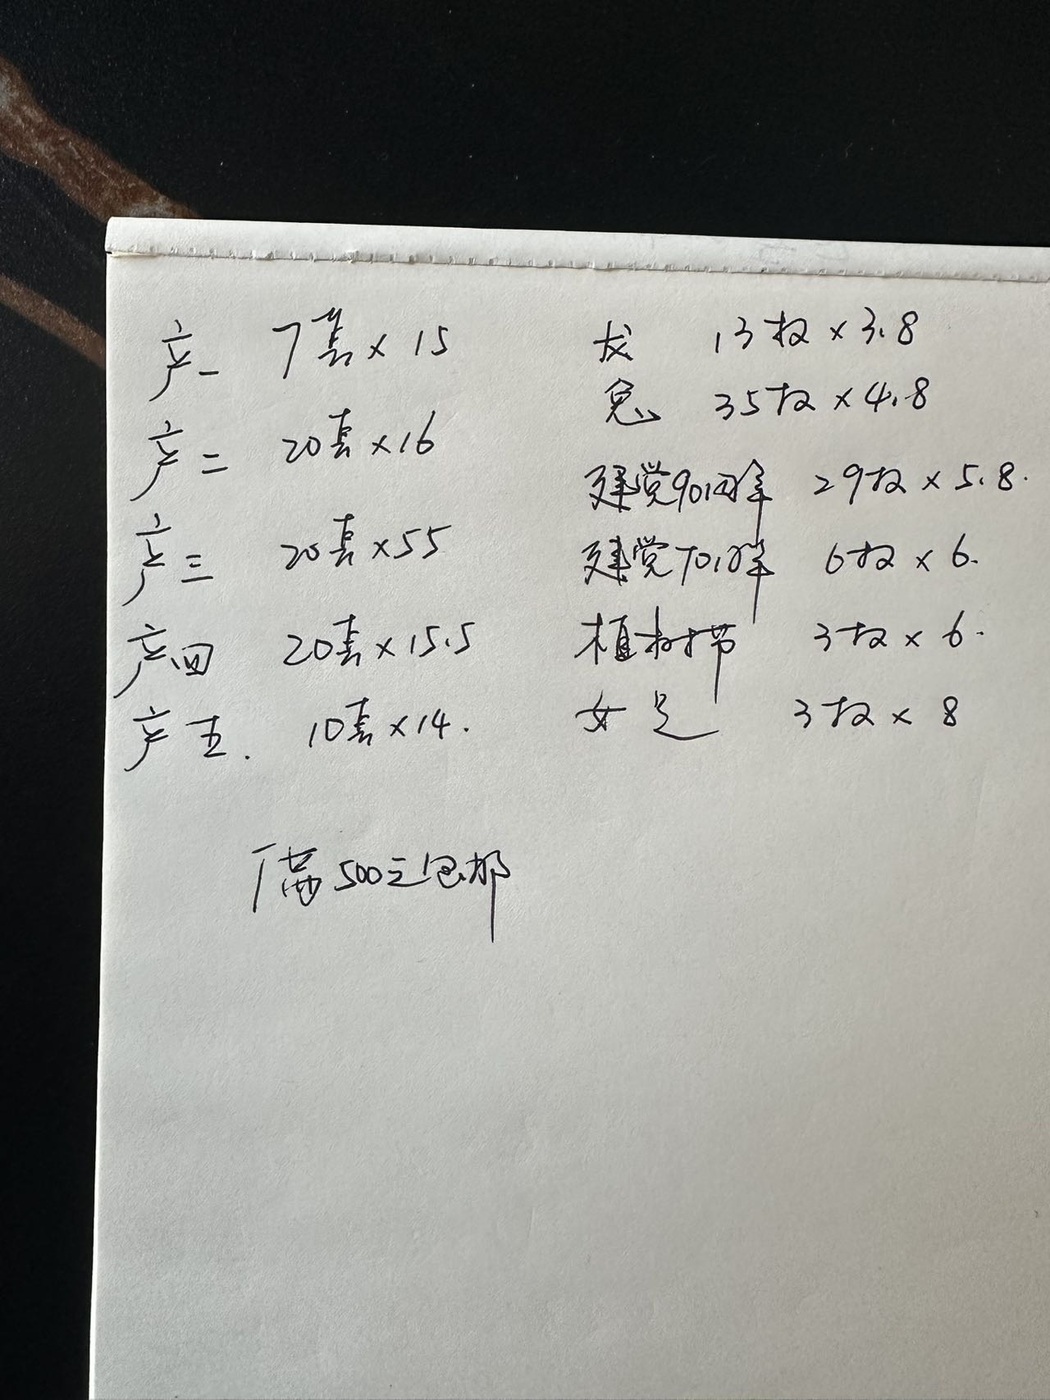 产一 7套×15
产二 20套×16
产三 20套×55
产四 20套×15.5
产五. 10套×14.
龙 13枚×3.8
兔 35枚×4.8
建党90周年 29枚×5.8.
建党70周年 6枚×6.
植树节 3枚×6.
女足 3枚×8
满500元包邮